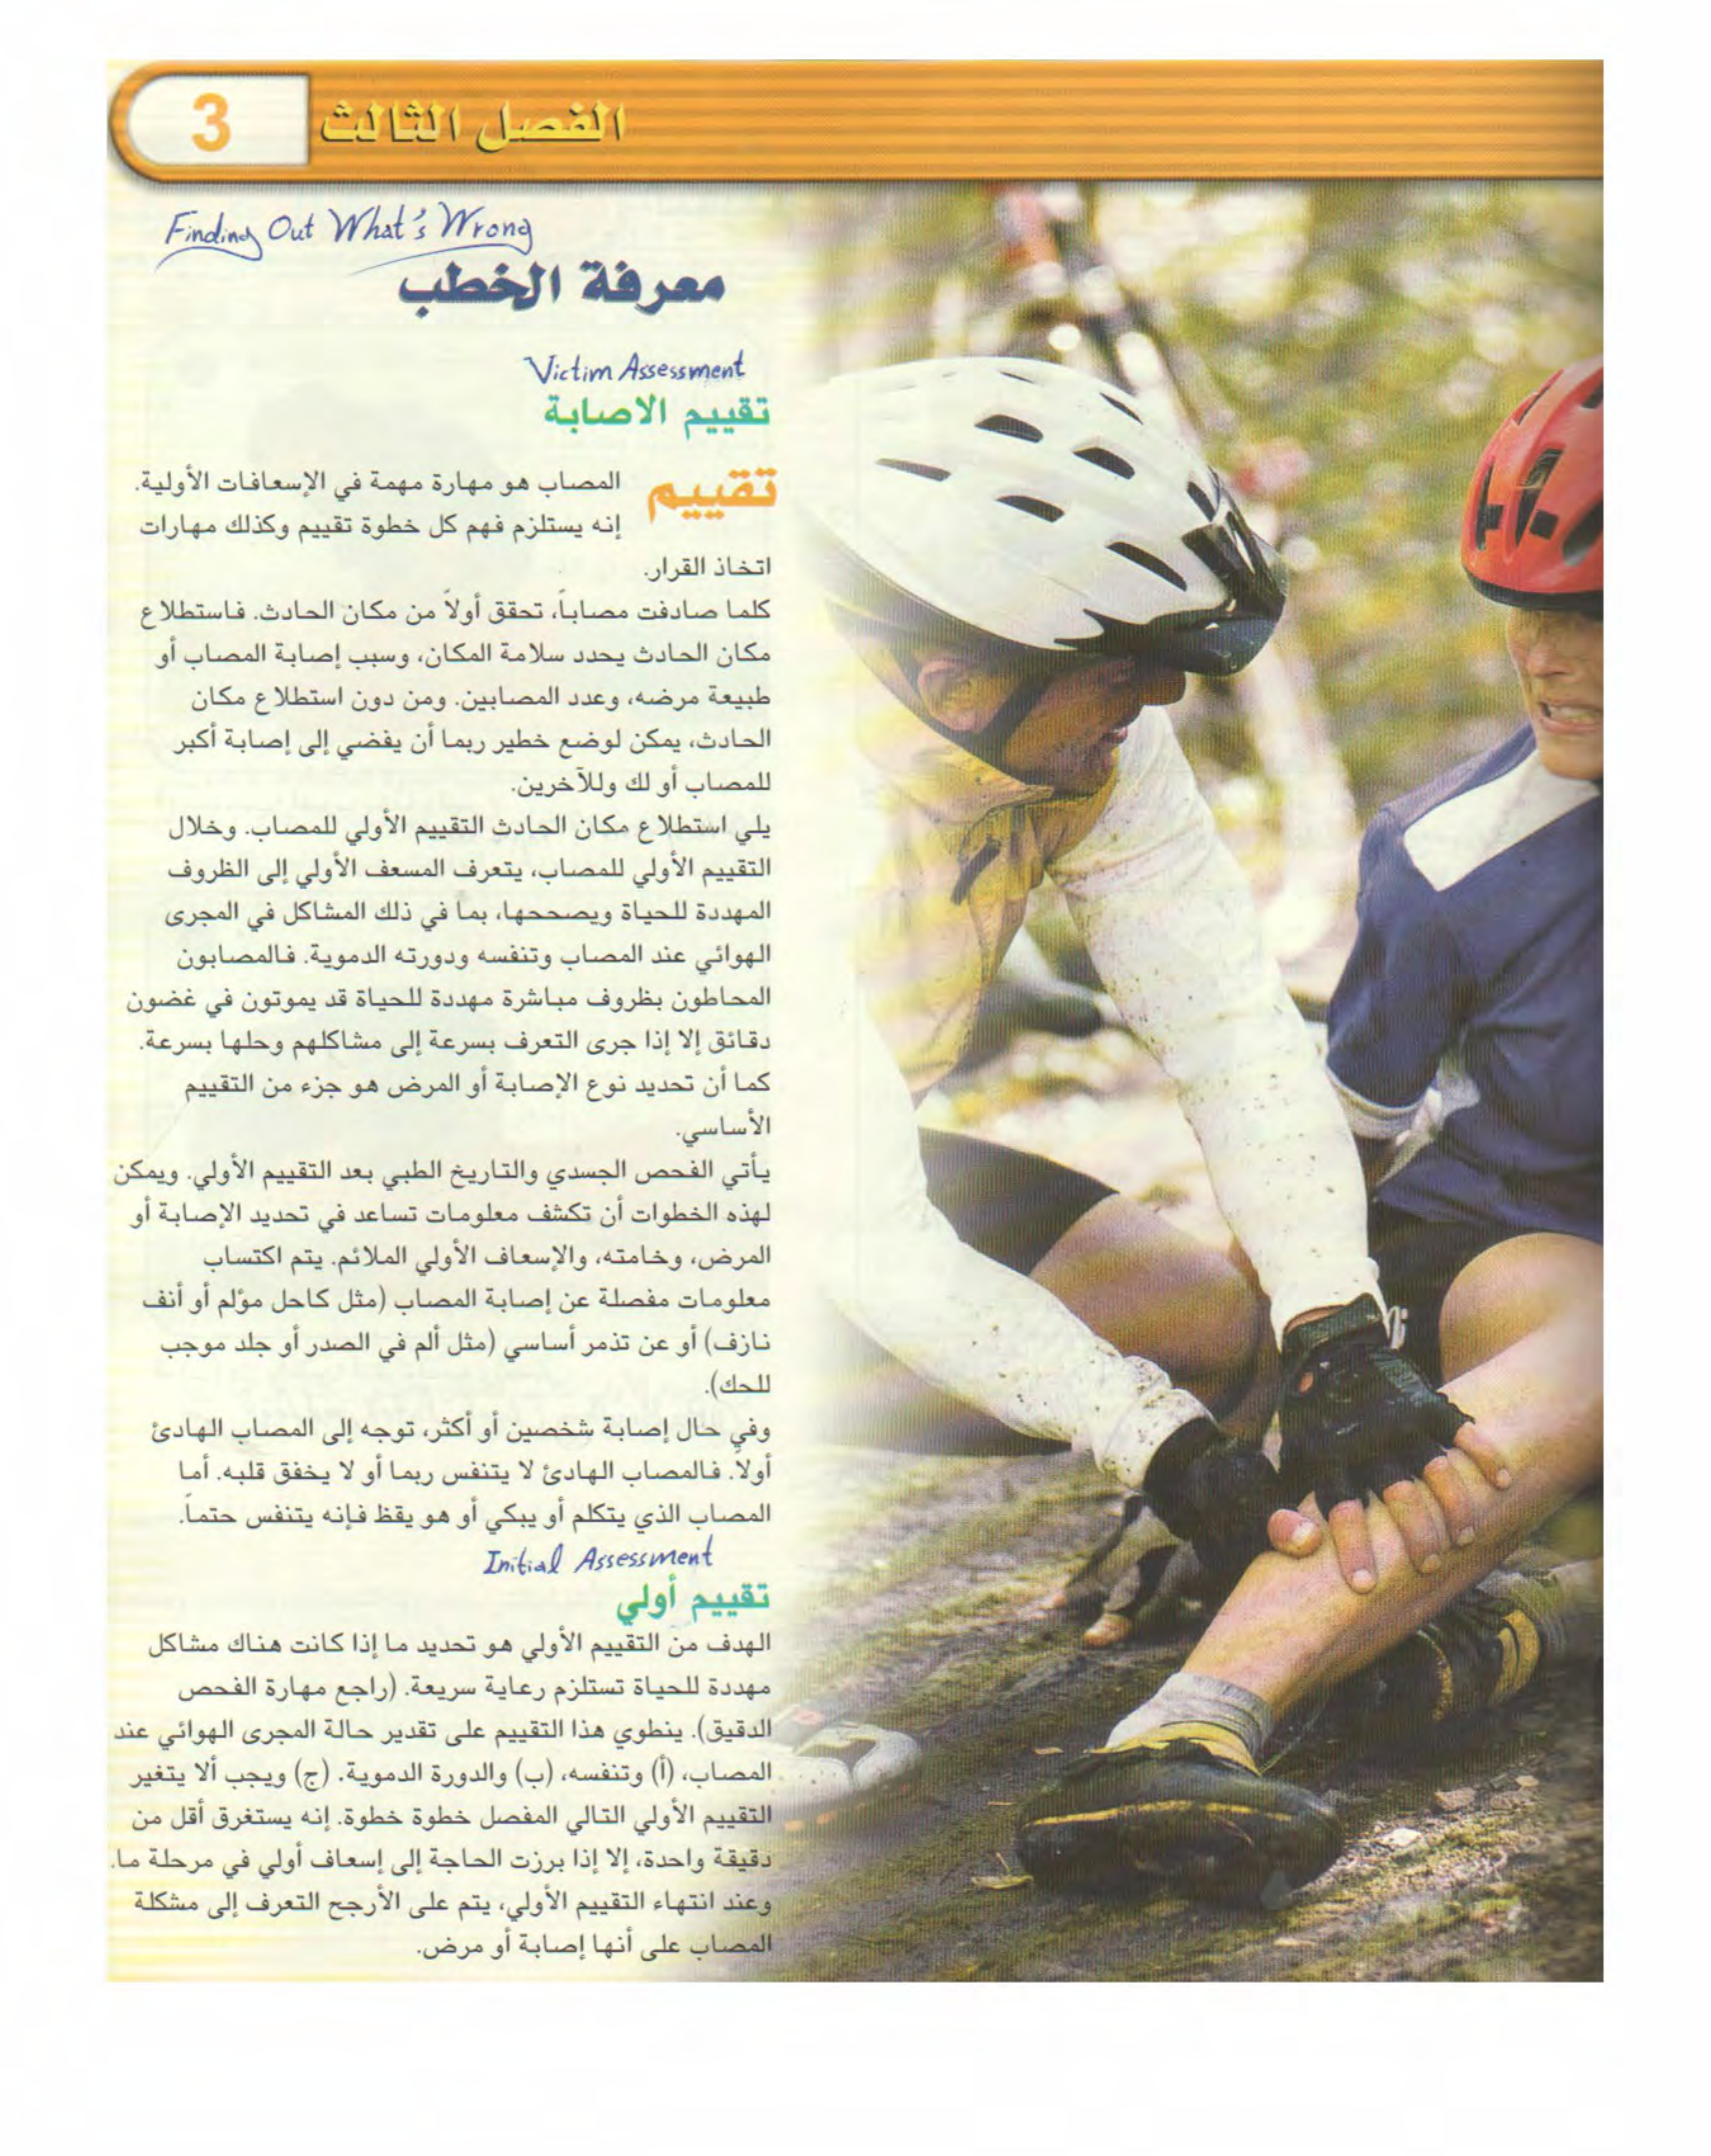 الفصل الثالث
3
Finding Out What's Wrong
معرفة الخطب
Victim Assessment
تقييم الاصابة
تقييم المصاب هو مهارة مهمة في الإسعافات الأولية.
إنه يستلزم فهم كل خطوة تقييم وكذلك مهارات
اتخاذ القرار.
كلما صادفت مصاباً، تحقق أولاً من مكان الحادث. فاستطلاع
مكان الحادث يحدد سلامة المكان، وسبب إصابة المصاب أو
طبيعة مرضه، وعدد المصابين. ومن دون استطلاع مكان
الحادث، يمكن لوضع خطير ربما أن يفضي إلى إصابة أكبر
للمصاب أو لك وللآخرين.
يلي استطلاع مكان الحادث التقييم الأولي للمصاب. وخلال
التقييم الأولي للمصاب، يتعرف المسعف الأولي إلى الظروف
المهددة للحياة ويصححها، بما في ذلك المشاكل في المجرى
الهوائي عند المصاب وتنفسه ودورته الدموية. فالمصابون
المحاطون بظروف مباشرة مهددة للحياة قد يموتون في غضون
دقائق إلا إذا جرى التعرف بسرعة إلى مشاكلهم وحلها بسرعة.
كما أن تحديد نوع الإصابة أو المرض هو جزء من التقييم
الأساسي.
يأتي الفحص الجسدي والتاريخ الطبي بعد التقييم الأولي. ويمكن
لهذه الخطوات أن تكشف معلومات تساعد في تحديد الإصابة أو
المرض، وخامته، والإسعاف الأولي الملائم. يتم اكتساب
معلومات مفصلة عن إصابة المصاب (مثل كاحل مؤلم أو أنف
نازف) أو عن تذمر أساسي (مثل ألم في الصدر أو جلد موجب
للحك).
وفي حال إصابة شخصين أو أكثر، توجه إلى المصاب الهادئ
أولاً. فالمصاب الهادئ لا يتنفس ربما أو لا يخفق قلبه. أما
المصاب الذي يتكلم أو يبكي أو هو يقظ فإنه يتنفس حتماً.
Initial Assessment
تقييم أولي
الهدف من التقييم الأولي هو تحديد ما إذا كانت هناك مشاكل
مهددة للحياة تستلزم رعاية سريعة. (راجع مهارة الفحص
الدقيق). ينطوي هذا التقييم على تقدير حالة المجرى الهوائي عند
المصاب، (أ) وتنفسه، (ب) والدورة الدموية. (ج) ويجب ألا يتغير
التقييم الأولي التالي المفصل خطوة خطوة. إنه يستغرق أقل من
دقيقة واحدة، إلا إذا برزت الحاجة إلى إسعاف أولي في مرحلة ما.
وعند انتهاء التقييم الأولي، يتم على الأرجح التعرف إلى مشكلة
المصاب على أنها إصابة أو مرض.